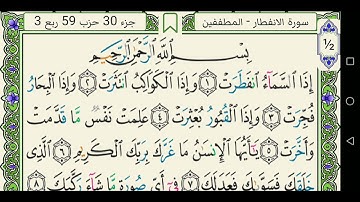 سورة الانفطار - المطففين
جزء 30 حزب 59 ربع 3
½
بِسْمِ ٱللَّهِ ٱلرَّحْمَٰنِ ٱلرَّحِيمِ
إِذَا ٱلسَّمَآءُ ٱنفَطَرَتْ ١ وَإِذَا ٱلْكَوَاكِبُ ٱنتَثَرَتْ ٢ وَإِذَا ٱلْبِحَارُ
فُجِّرَتْ ٣ وَإِذَا ٱلْقُبُورُ بُعْثِرَتْ ٤ عَلِمَتْ نَفْسٌ مَّا قَدَّمَتْ
وَأَخَّرَتْ ٥ يَٰٓأَيُّهَا ٱلْإِنسَٰنُ مَا غَرَّكَ بِرَبِّكَ ٱلْكَرِيمِ ٦ ٱلَّذِى
خَلَقَكَ فَسَوَّىٰكَ فَعَدَلَكَ ٧ فِىٓ أَىِّ صُورَةٍ مَّا شَآءَ رَكَّبَكَ ٨